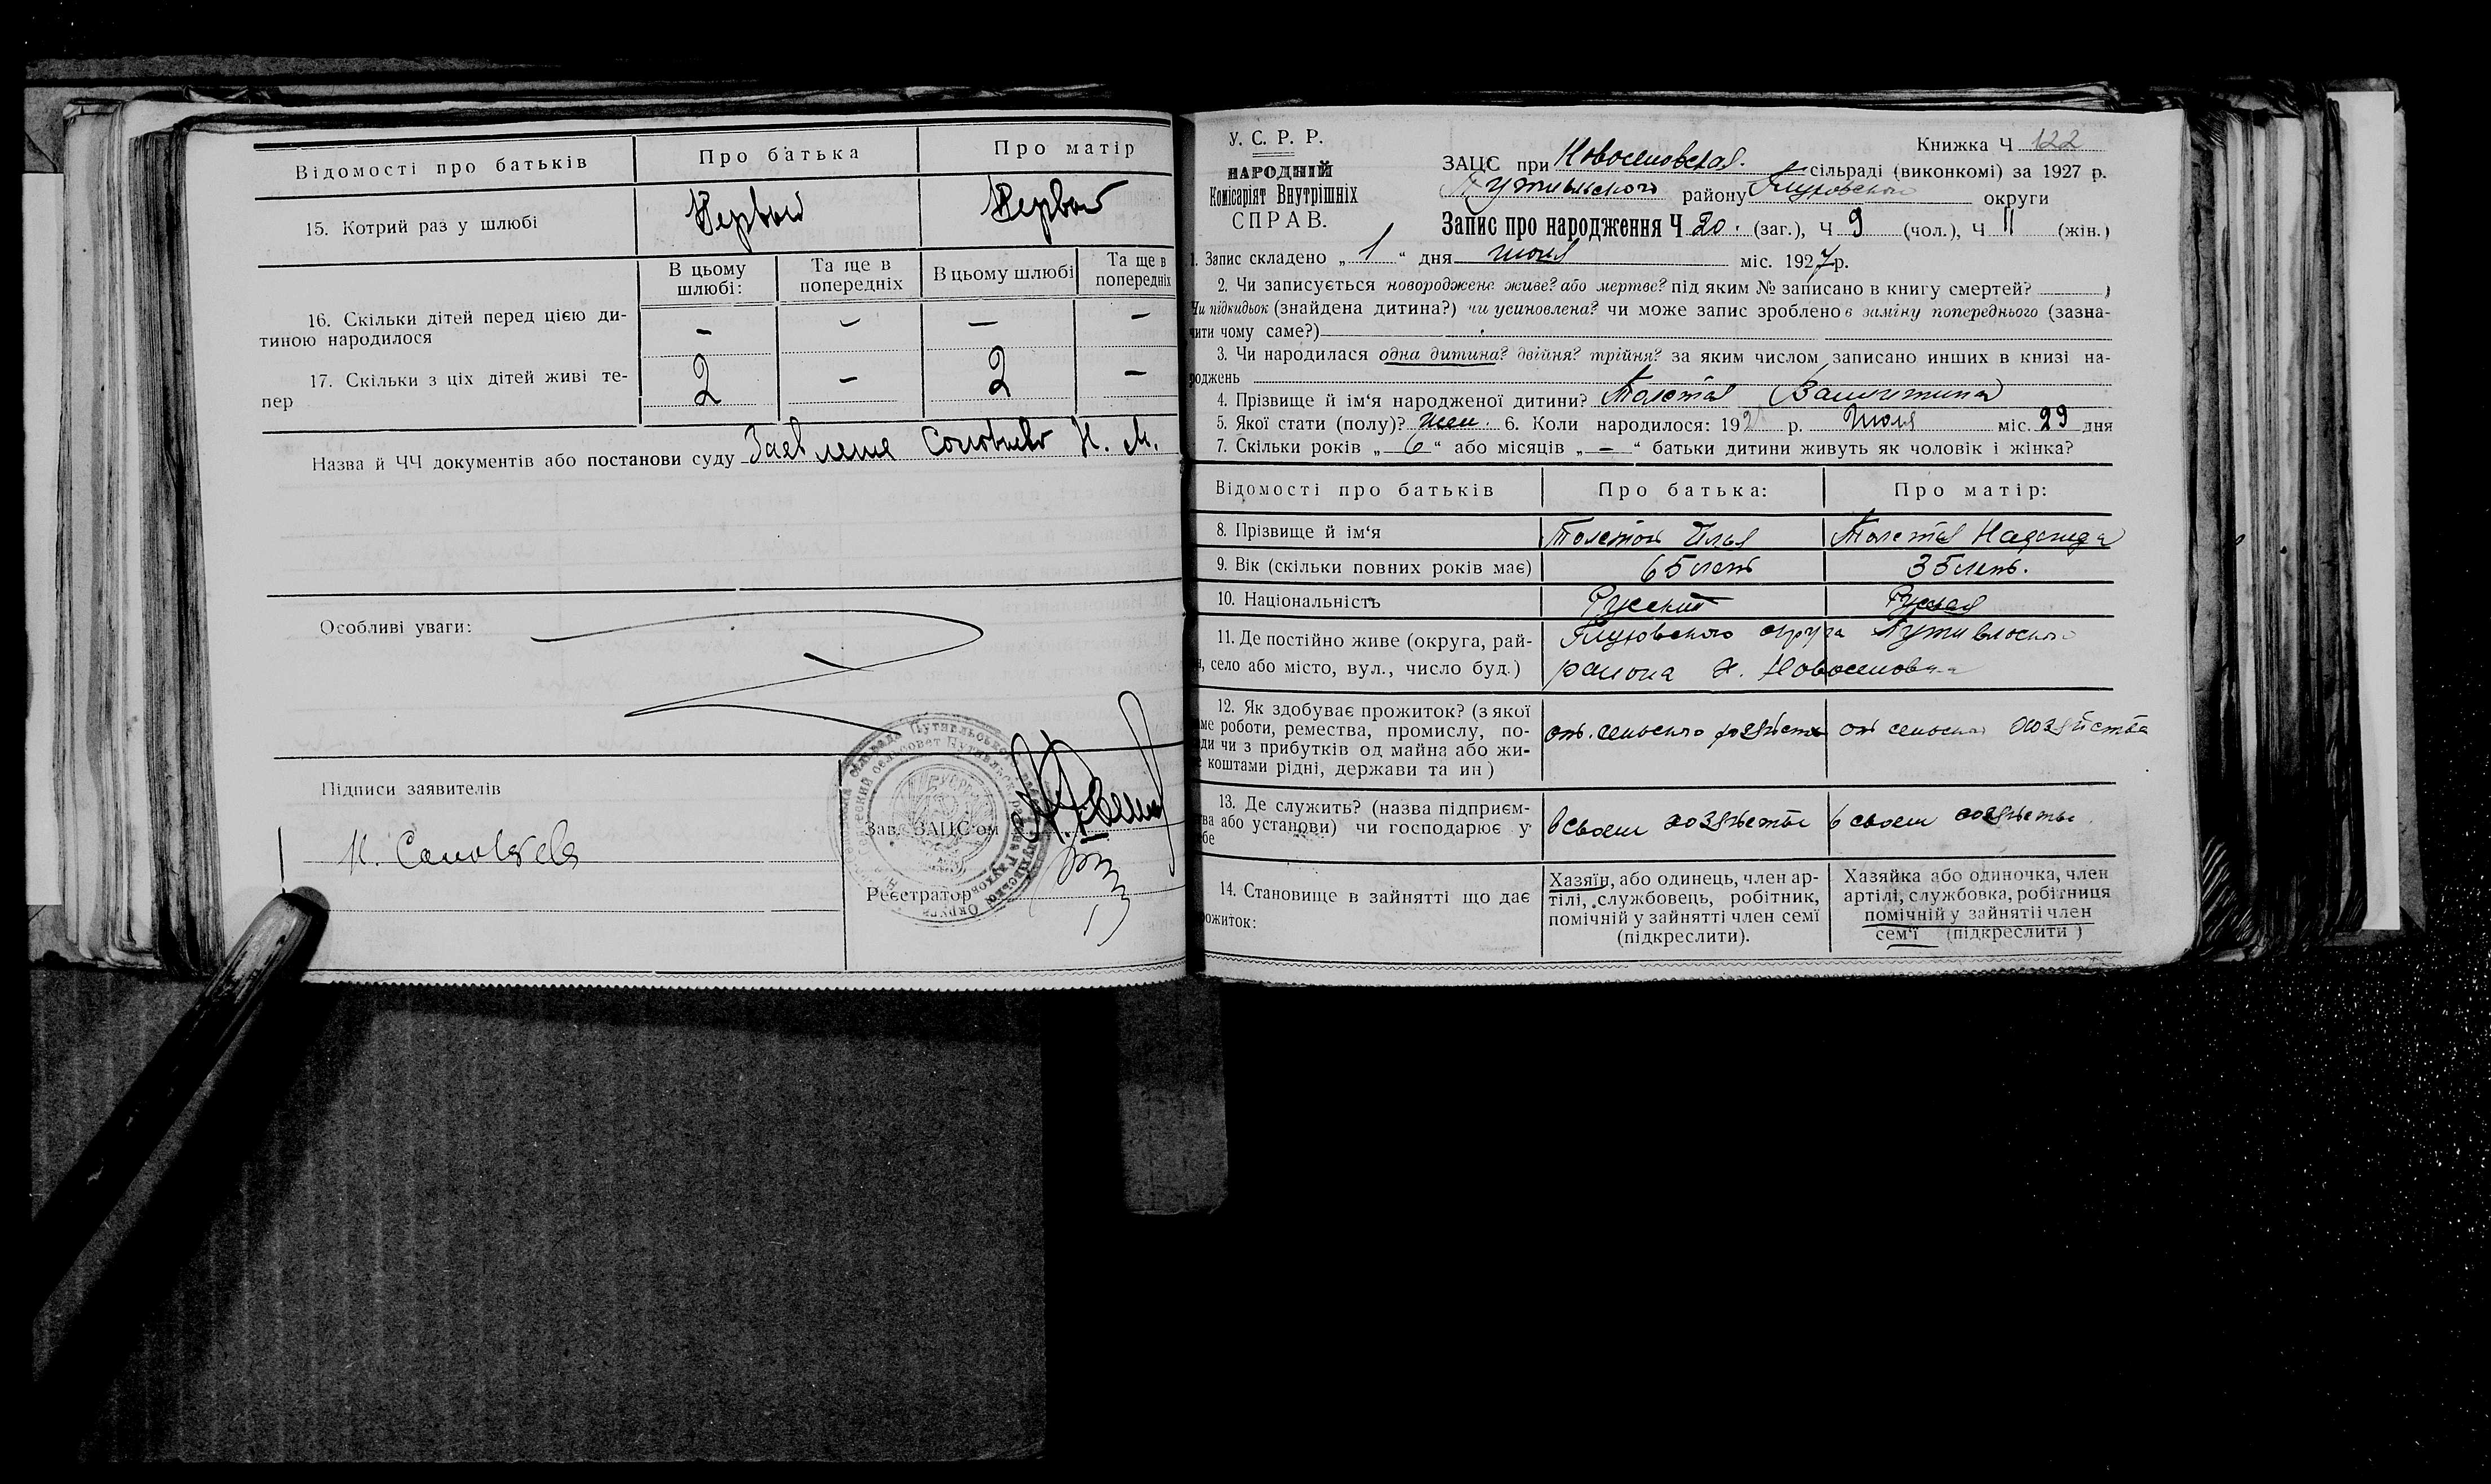 Відомості про батьків
Про батька
Про матір
15. Котрий раз у шлюбі
Первый
Первый
В цьому шлюбі:
Та ще в попередніх
В цьому шлюбі
Та ще в попередніх
16. Скільки дітей перед цією ди-
тиною народилося
– – – –
17. Скільки з ціх дітей живі те-
пер
2 – 2 –
Назва й ЧЧ документів або постанови суду Заевление Соловьево Н. М.
Особливі уваги:
Підписи заявителів
Зав. ЗАЦС'ом
Н. Соловьева
Реєстратор
У. С. Р. Р.
НАРОДНІЙ
Комісаріят Внутрішніх
СПРАВ.
Книжка Ч 122
ЗАЦС при Новоселовская сільраді (виконкомі) за 1927 р.
Путивльского району Глуховской округи
Запис про народження Ч 20. (заг.), Ч 9 (чол.), Ч 11 (жін.)
1. Запис складено „ 1 “ дня июля міс. 1927 р.
2. Чи записується новороджене живе? або мертве? під яким № записано в книгу смертей?
Чи підкидьок (знайдена дитина?) чи усиновлена? чи може запис зроблено в заміну попереднього (зазна-
чити чому саме?)
3. Чи народилася одна дитина? двійня? трійня? за яким числом записано инших в книзі на-
роджень
4. Прізвище й ім'я народженої дитини? Толстая Валентина
5. Якої стати (полу)? жен 6. Коли народилося: 192 р. Июля міс. 29 дня
7. Скільки років „ 6 “ або місяців „ – “ батьки дитини живуть як чоловік і жінка?
Відомості про батьків
Про батька:
Про матір:
8. Прізвище й ім'я
Толстой Илья
Толстая Надежда
9. Вік (скільки повних років має)
65 лет
35 лет.
10. Національність
Русский
Русская
11. Де постійно живе (округа, рай-
н, село або місто, вул., число буд.)
Глуховского округа Путивльского
района х. Новоселовка
12. Як здобуває прожиток? (з якої
ме роботи, ремества, промислу, по-
ди чи з прибутків од майна або жи-
е коштами рідні, держави та ин)
от. сельского хозяйства
от сельского хозяйства
13. Де служить? (назва підприєм-
ва або установи) чи господарює у
бе
в своем хозяйстве
в своем хозяйстве
14. Становище в зайнятті що дає
рожиток:
Хазяїн, або одинець, член ар-
тілі, службовець, робітник,
помічній у зайнятті член семї
(підкреслити).
Хазяйка або одиночка, член
артілі, службовка, робітниця
помічній у зайнятії член
сем'ї (підкреслити)